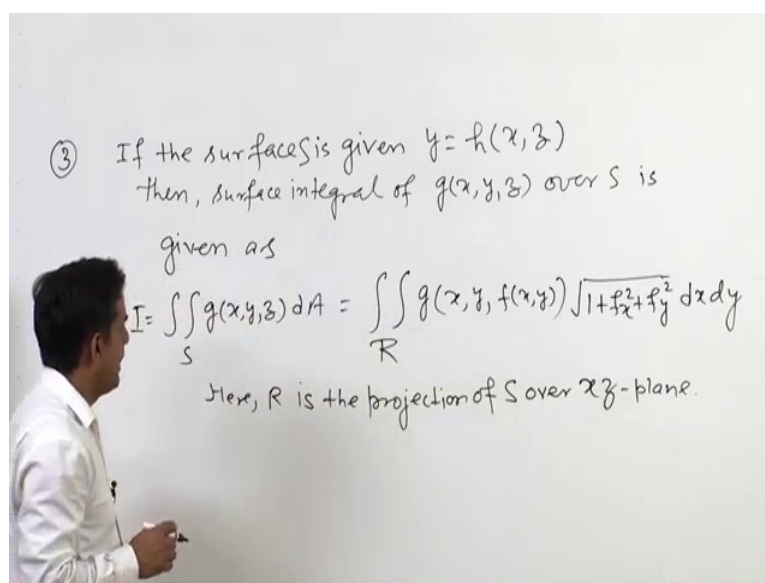 ③ If the surface S is given y = h(x, z)
then, surface integral of g(x, y, z) over S is
given as
I = ∬_S g(x,y,z) dA = ∬_R g(x, y, f(x,y)) √(1+f_x^2+f_y^2) dx dy
Here, R is the projection of S over xz-plane.